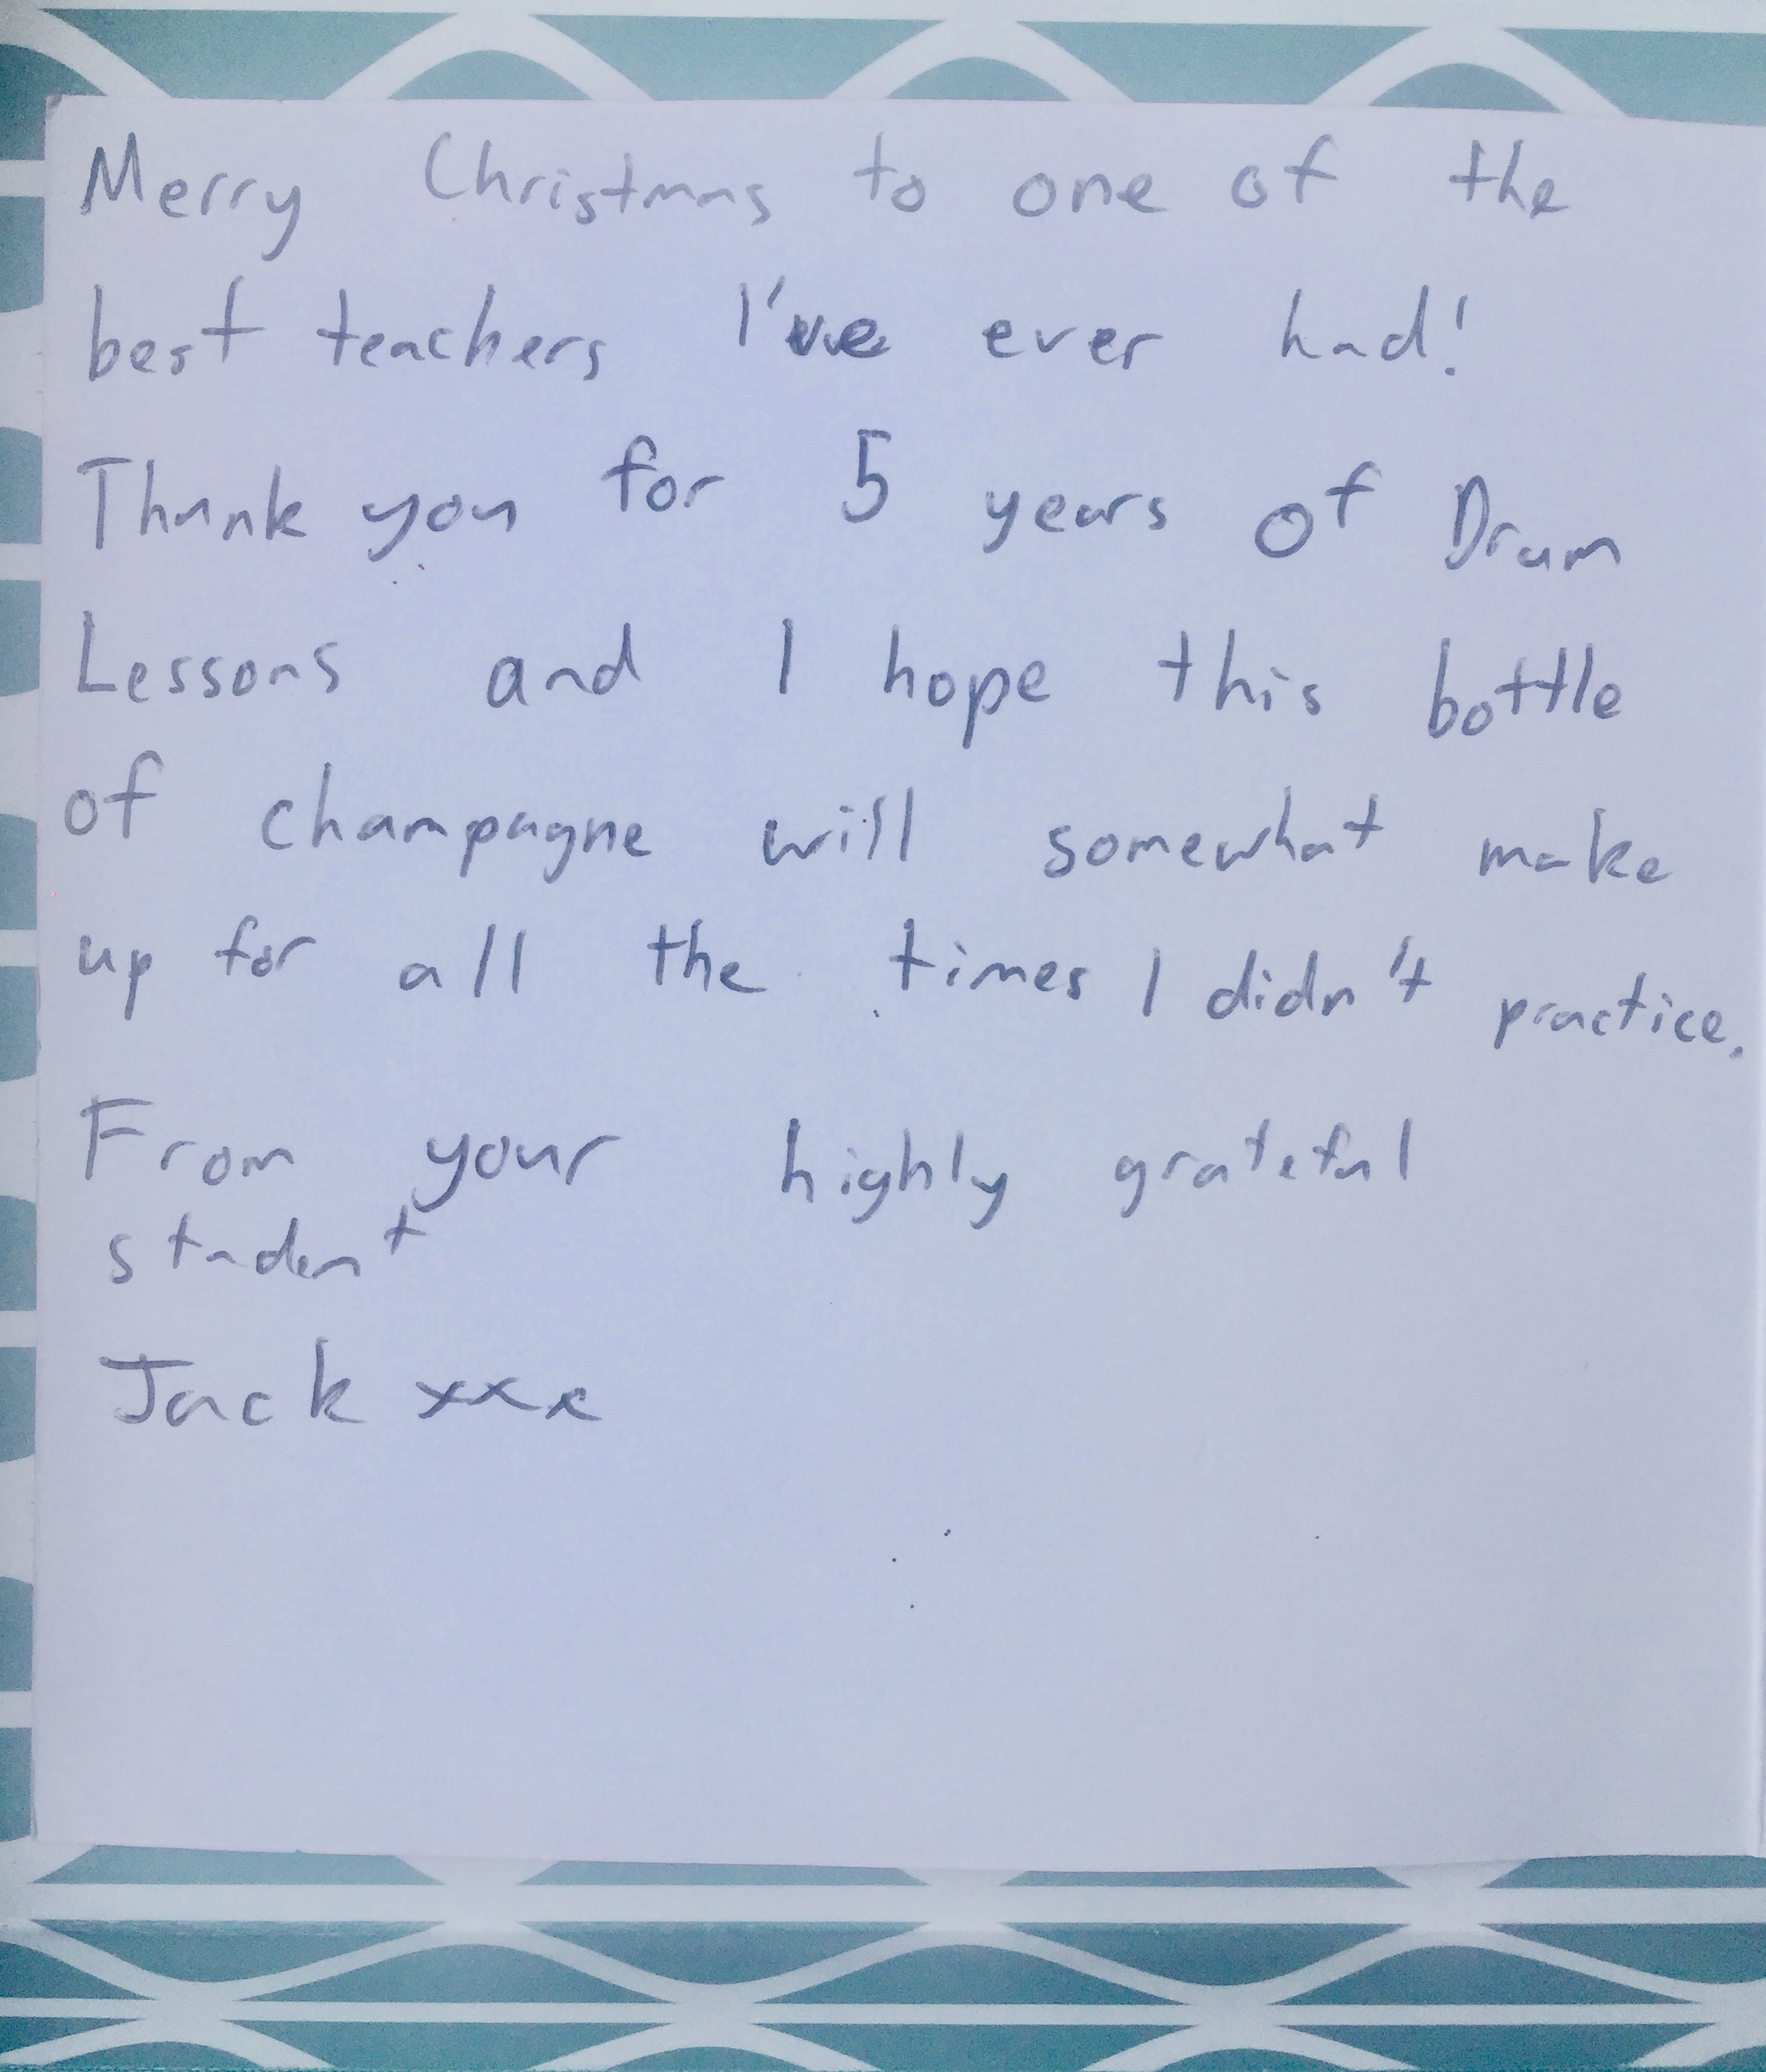 Merry Christmas to one of the
best teachers I've ever had!
Thank you for 5 years of Drum
Lessons and I hope this bottle
of champagne will somewhat make
up for all the times I didn't practice.
From your highly grateful
student
Jack xxx